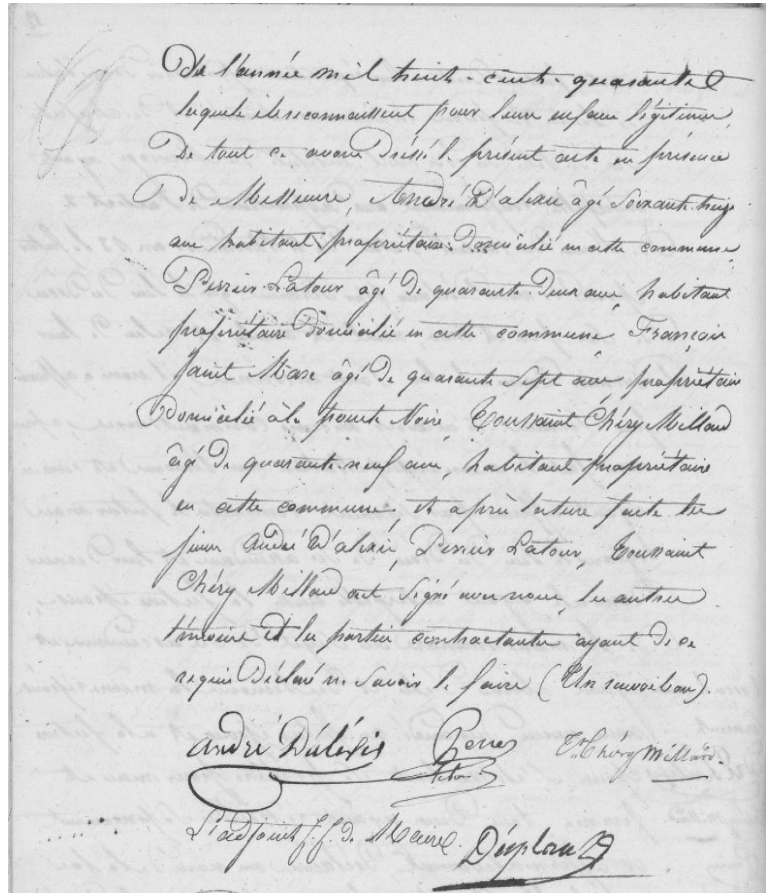 De l'année mil huit-cent-quarante
lequels ils reconnaissent pour leurs enfans légitimes,
De tout ce avons dréssé le présent acte en présence
De Messieurs, André D'alexis âgé Soixante-treize
ans habitant propriétaire Domicilié en cette commune,
Perrier Latour âgé de quarante-Deux ans, habitant
propriétaire Domicilié en cette commune, François
Saint Marc âgé de quarante Sept ans propriétaire
Domicilié à la pointe Noire, Toussaint Chéry Millard
âgé De quarante-neuf ans, habitant propriétaire
en cette commune, et après lecture faite les
sieurs André D'alexis, Perrier Latour, Toussaint
Chéry Millard ont Signé avec nous, les autres
témoins Et les parties contractantes ayant de ce
requis Déclaré ne Savoir le faire (Un renvoi bon).
André D'alexis
T. Chéry Millard.
L'adjoint f. f. de Maire.